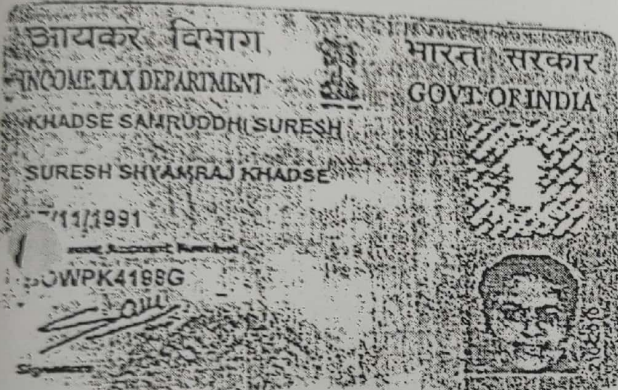 आयकर विभाग
भारत सरकार
INCOME TAX DEPARTMENT
GOVT. OF INDIA
KHADSE SAMRUDDHI SURESH
SURESH SHYAMRAJ KHADSE
/11/1991
Permanent Account Number
OWPK4199G
Signature